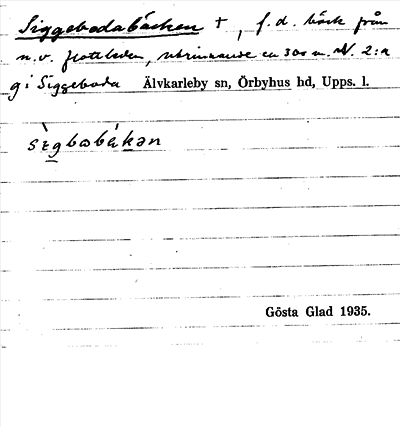 Siggebodabäcken †, f.d. bäck från
n.v. flottleden, utrinnande ca 300 m. N. 2:a
g i Siggeboda Älvkarleby sn, Örbyhus hd, Upps. l.
sìgbobákən
Gösta Glad 1935.